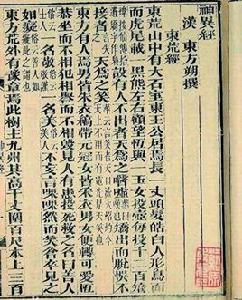 神異經
漢 東方朔撰
東荒經
東荒山中有大石室東王公居焉長一丈頭髮皓白人形鳥面
而虎尾載一黑熊左右顧望恆與一玉女投壺每投千二百矯
設有入不出者天爲之 矯出而脫悞不
接者 天爲之笑
東方有人焉男皆朱衣縞帶元冠女皆采衣男女便轉可愛恆
恭坐而不相犯相譽而不相毀見人有患投死救之名曰善人
一名敬 一名美 不妄言 然而笑倉卒見之
如
東方荒外有豫章焉此樹主九州其高千丈圍百尺本上三百